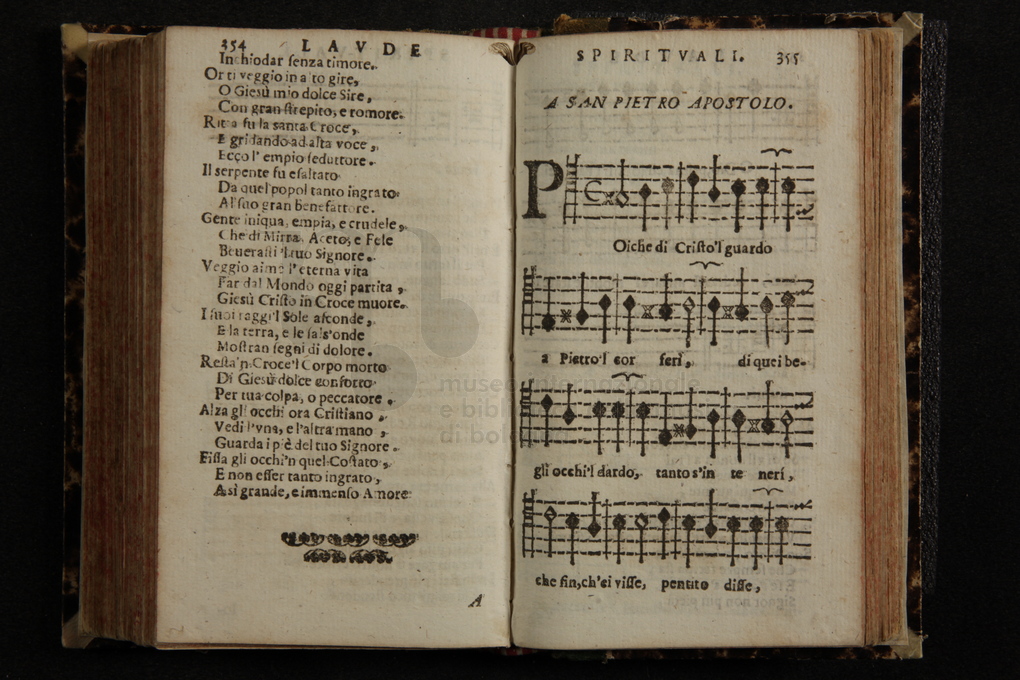 354 LAVDE
Inchiodar ſenza timore.
Or ti veggio in alto gire,
O Gieſù mio dolce Sire,
Con gran ſtrepito, e romore.
Ritta fu la santa Croce,
E gridando ad alta voce,
Ecco l'empio ſeduttore.
Il serpente fu eſaltato
Da quel popol tanto ingrato
Al ſuo gran benefattore.
Gente iniqua, empia, e crudele,
Che di Mirra, Aceto, e Fele
Beueraſti 'l tuo Signore.
Veggio aimè l'eterna vita
Far dal Mondo oggi partita,
Gieſù Criſto in Croce muore.
I ſuoi raggi'l Sole aſconde,
E la terra, e le ſals'onde
Moſtran ſegni di dolore.
Reſta'n Croce'l Corpo morto
Di Gieſù dolce conforto
Per tua colpa, o peccatore.
Alza gli occhi ora Criſtiano,
Vedi l'vna, e l'altra mano,
Guarda i piè del tuo Signore.
Fiſſa gli occhi'n quel Coſtato,
E non eſſer tanto ingrato,
A sì grande, e immenſo Amore
A
SPIRITVALI. 355
A SAN PIETRO APOSTOLO.
POiche di Criſto'l guardo
a Pietro'l cor ferì, di quei be-
gli occhi'l dardo, tanto s'in te nerì,
che fin, ch'ei viſſe, pentito diſſe,
museo internazionale
e biblio
di bolo